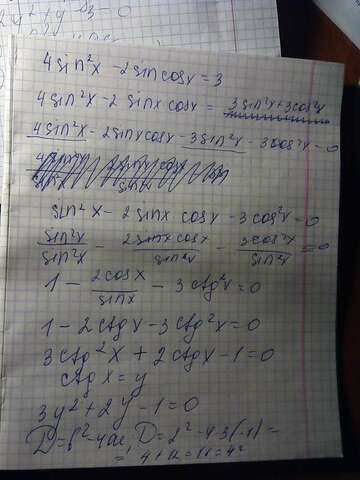 4sin²x - 2sin cosx = 3
4sin²x - 2 sinx cosx = 3sin²x + 3cos²x
4sin²x - 2sinx cosx - 3sin²x - 3cos²x = 0
sin²x - 2 sinx cosx - 3cos²x = 0
sin²x/sin²x - 2sinx cosx/sin²x - 3cos²x/sin²x = 0
1 - 2cosx/sinx - 3ctg²x = 0
1 - 2ctgx - 3ctg²x = 0
3ctg²x + 2ctgx - 1 = 0
ctgx = y
3y² + 2y - 1 = 0
D = b² - 4ac D = 2² - 4·3(-1) =
= 4 + 12 = 16 = 4²